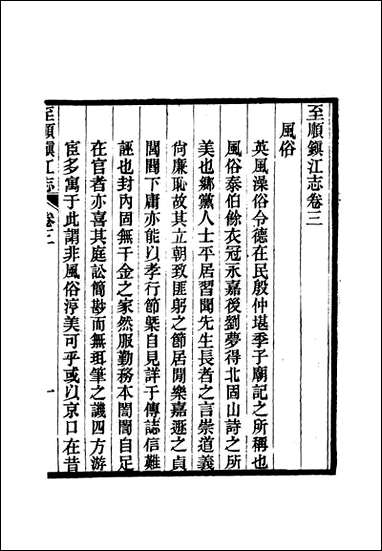 至順鎮江志卷三
風俗
英風澡俗令德在民殷仲堪季子廟記之所稱也
風俗泰伯餘衣冠永嘉後劉夢得北固山詩之所
美也鄉黨人士平居習聞先生長者之言崇道義
尙廉恥故其立朝致匪躬之節居閒樂嘉遯之貞
閭閻下庸亦能以孝行節槩自見詳于傳誌信難
誣也封內固無千金之家然服勤務本誾誾自足
在官者亦喜其庭訟簡尠而無珥筆之譏四方游
宦多寓于此謂非風俗淳美可乎或以京口在昔
至順鎮江志
卷三
一